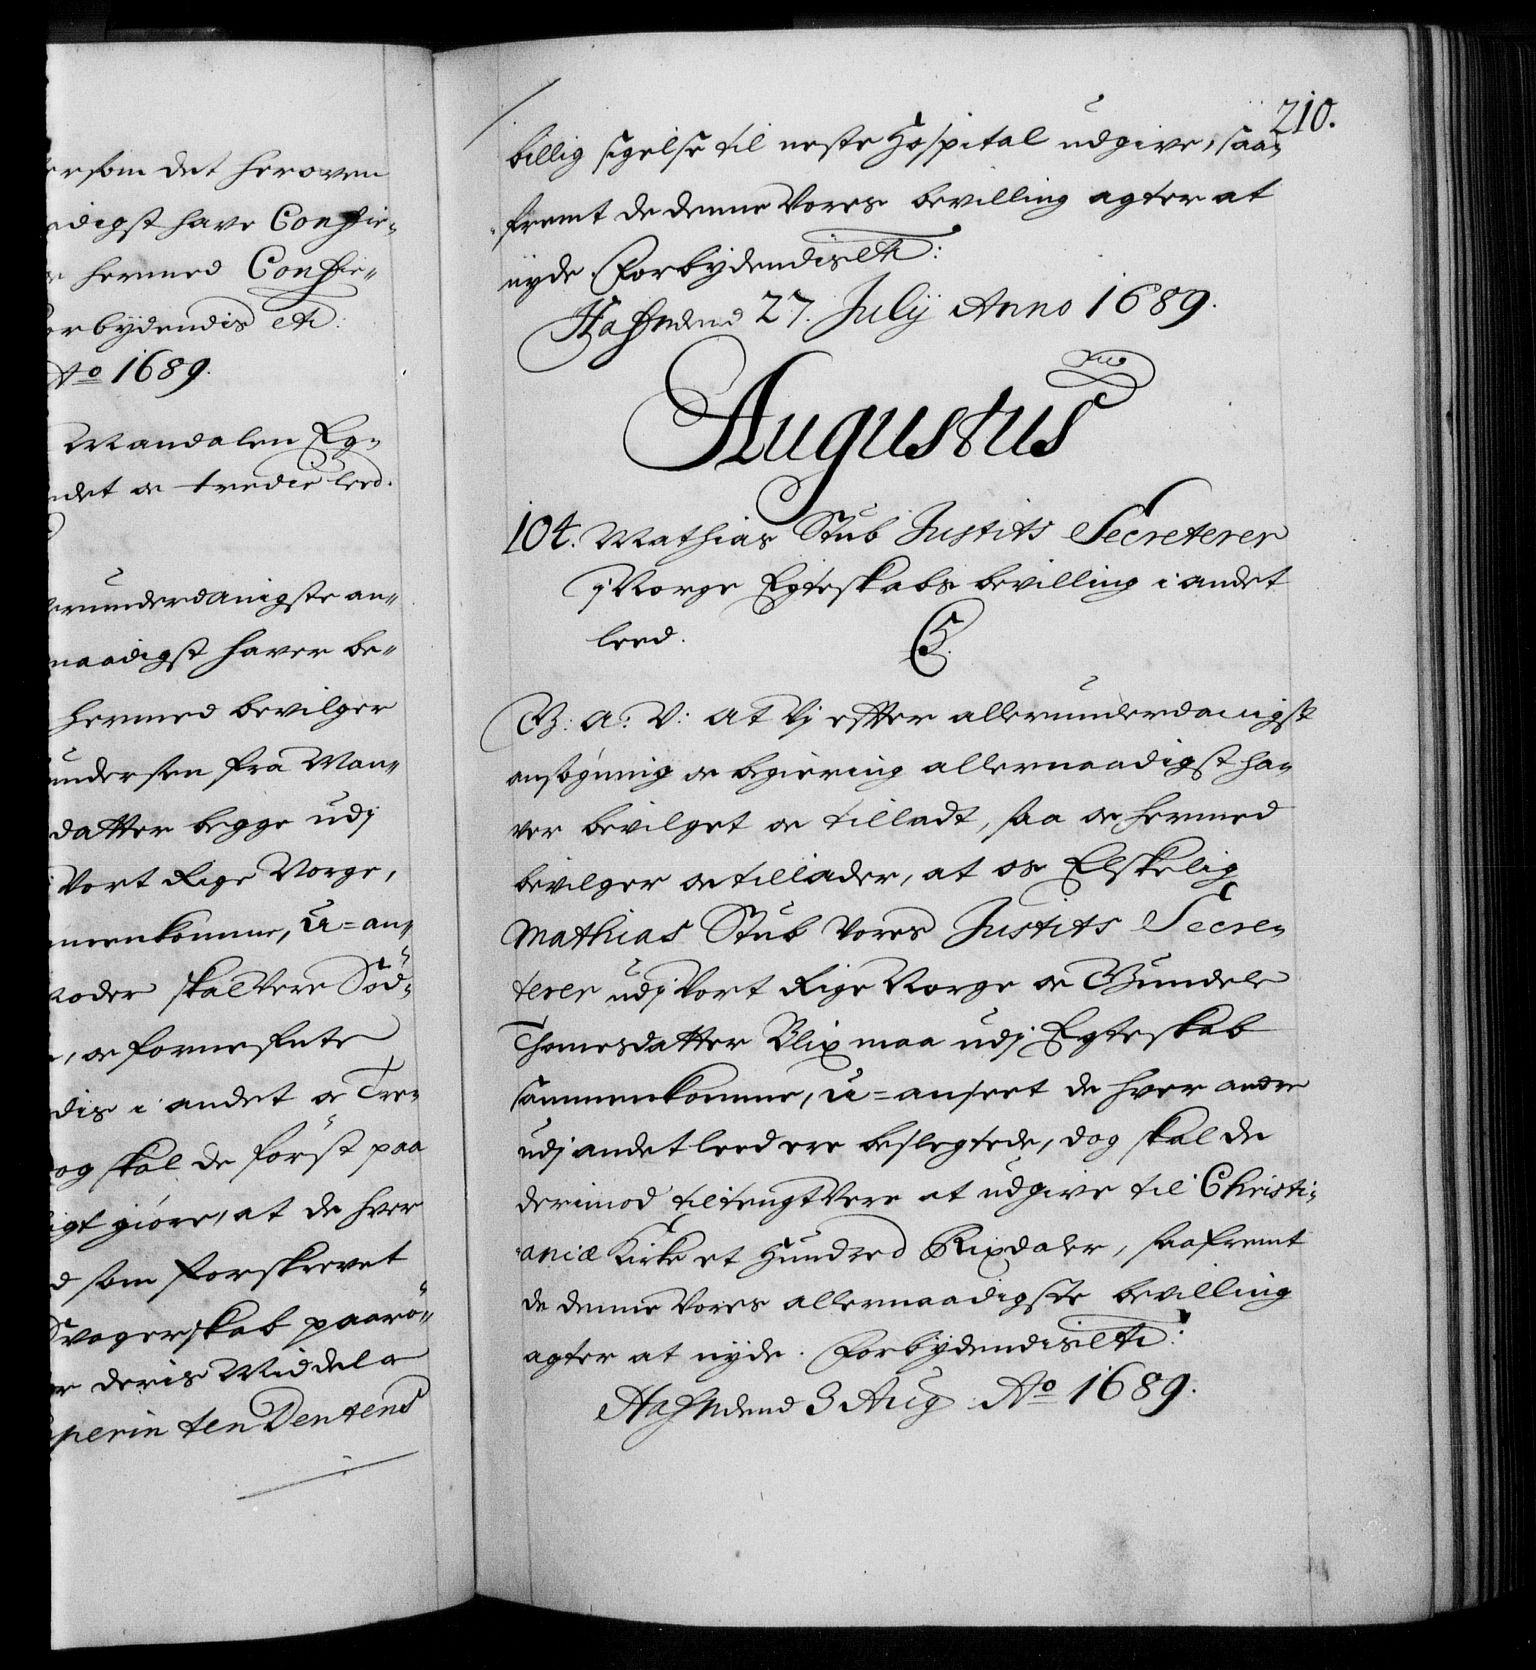 ersom det heroven
adigst have Confir-
hermed Confir-
orbydendis etc:
Ao 1689.
Mandalen Eg-
ndet oc tredie leed.
erunderdanigste an-
naadigst haver be-
hermed bevilger
undersen fra Man-
datter begge udj
Vort Rige Norge,
menkomme, u=an-
skal Være Död-
, oc forneffnte
dis i andet oc Tre-
og skal de först paa
igt giöre, at de hver
d som forskrevet
Svogerskab paarö-
deris Middel oc
perintendentens
210.
billig sigelse til neste Hospital udgive, saa-
fremt de denne Vores bevilling agter at
nyde. Forbydendis etc:
Haffn den 27. Julÿ Anno 1689.
Augustus
104. Mathias Stub Justits Secreterer
j Norge Egteskabs bevilling i andet
leed.
C5.
G. A. V: At Vj effter allerunderdanigst
ansögning oc begiering allernaadigst ha-
ver bevilget oc tilladt, saa oc hermed
bevilger oc tillader, at os Elskelig
Mathias Stub Vores Justits Secre-
terer udj Vort Rige Norge oc Gundele
Thomesdatter Blix maa udj Egteskab
sammenkomme, u=anseet de hver andre
udj andet leed ere beslegtede, dog skal de
derimod tiltengt Vere at udgive til Christi-
aniæ Kirke et Hundred Rixdaler, saafremt
de denne Vores allernaadigste bevilling
agter at nyde. Forbydendis etc:
Haffn den 3 Aug Ao 1689.